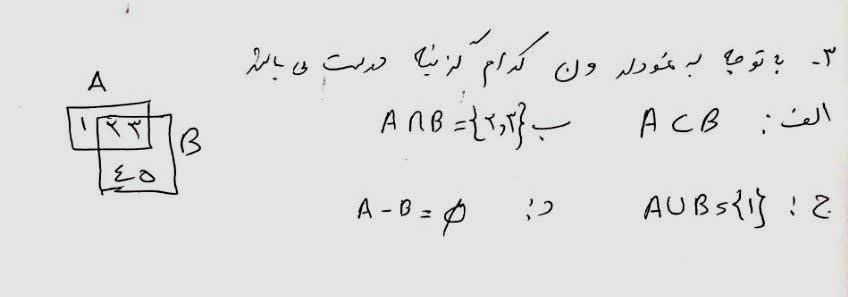 ۳- با توجه به نمودار ون کدام گزینه درست می باشد
الف: A ⊂ B ب A ∩ B = {۲,۳}
ج: A ∪ B = {۱} د: A - B = ∅
A
۱ ۲ ۳
B
٤ ۵